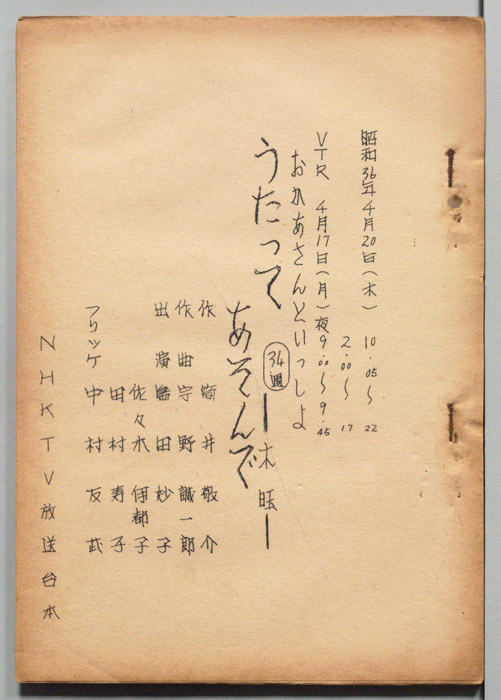 昭和36年4月20日（木） 10.05〜22
2.00〜17
VTR 4月17日（月）夜9.00〜9.45
おかあさんといっしょ
うたって あそんで
34週 ー木曜ー
作 筒井敬介
作曲 宇野誠一郎
出演 島田妙子
佐々木伊都子
田村寿子
フリツケ 中村友武
NHKTV放送台本